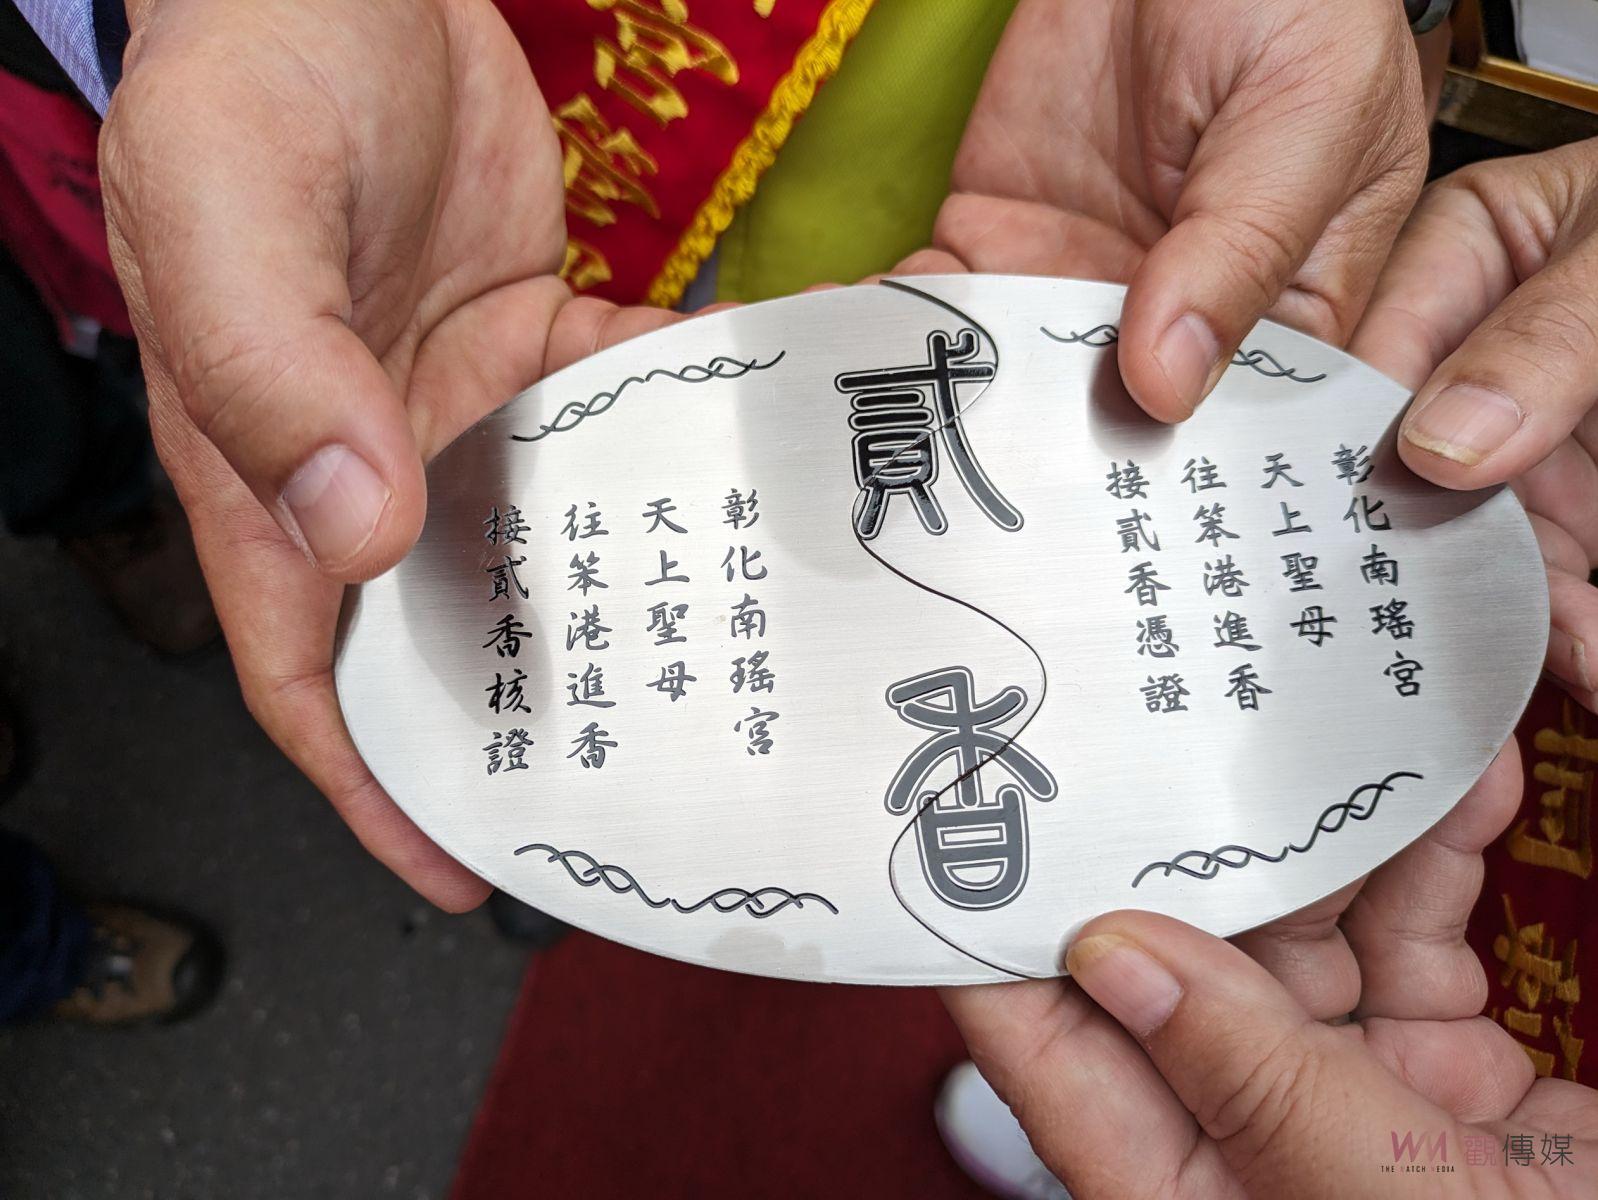 貳香
彰化南瑤宮
天上聖母
往笨港進香
接貳香憑證
彰化南瑤宮
天上聖母
往笨港進香
接貳香核證
WM 觀傳媒
THE WATCH MEDIA